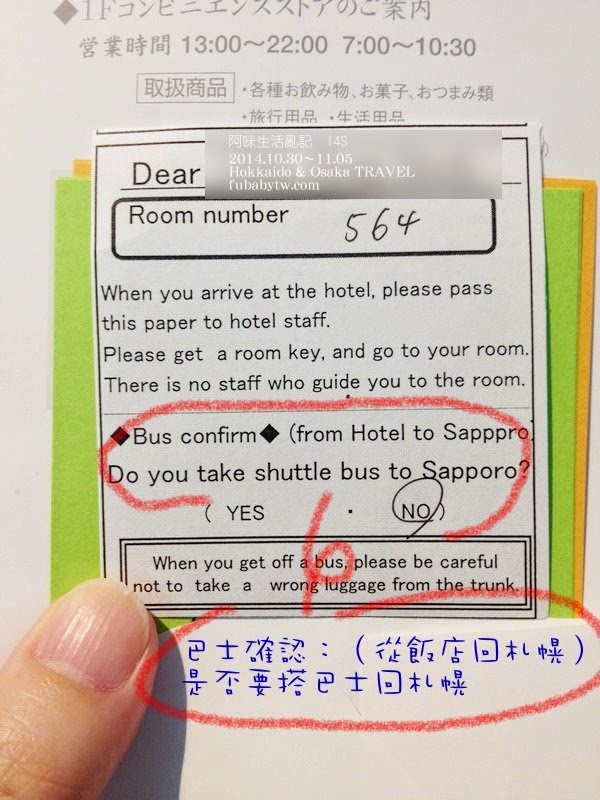 ◆1Fコンビニエンスストアのご案内
営業時間 13:00～22:00 7:00～10:30
取扱商品 ・各種お飲み物、お菓子、おつまみ類
・旅行用品 ・生活用品
阿咪生活亂記 14S
2014.10.30～11.05
Hokkaido & Osaka TRAVEL
fubabytw.com
Dear
Room number 564
When you arrive at the hotel, please pass
this paper to hotel staff.
Please get a room key, and go to your room.
There is no staff who guide you to the room.
◆Bus confirm◆ (from Hotel to Sapppro)
Do you take shuttle bus to Sapporo?
( YES ・ NO )
When you get off a bus, please be careful
not to take a wrong luggage from the trunk
巴士確認：（從飯店回札幌）
是否要搭巴士回札幌